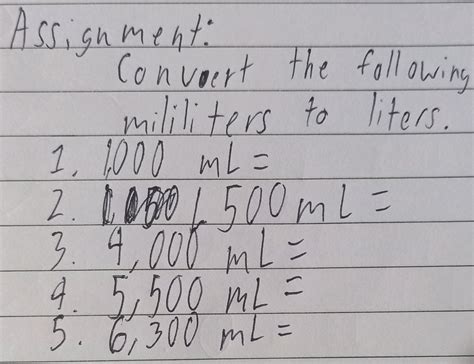 Assignment:
Convert the following
mililiters to liters.
1. 1,000 mL =
2. 1,500 mL =
3. 4,000 mL =
4. 5,500 mL =
5. 6,300 mL =